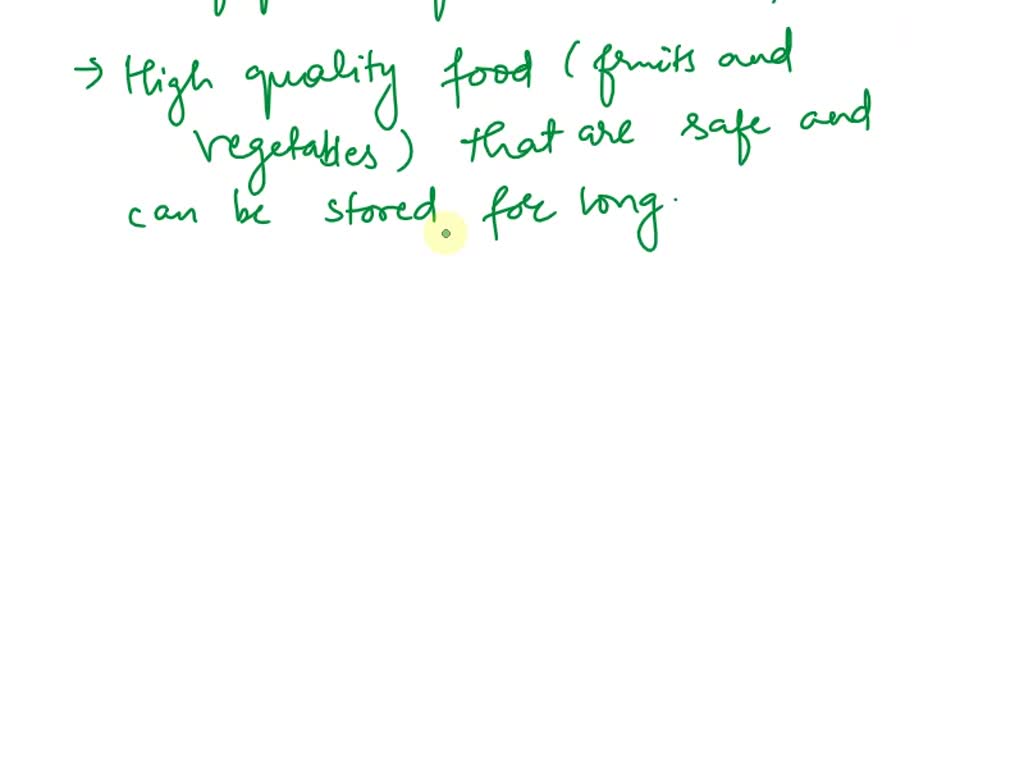 → High quality food (fruits and
vegetables) that are safe and
can be stored for long.